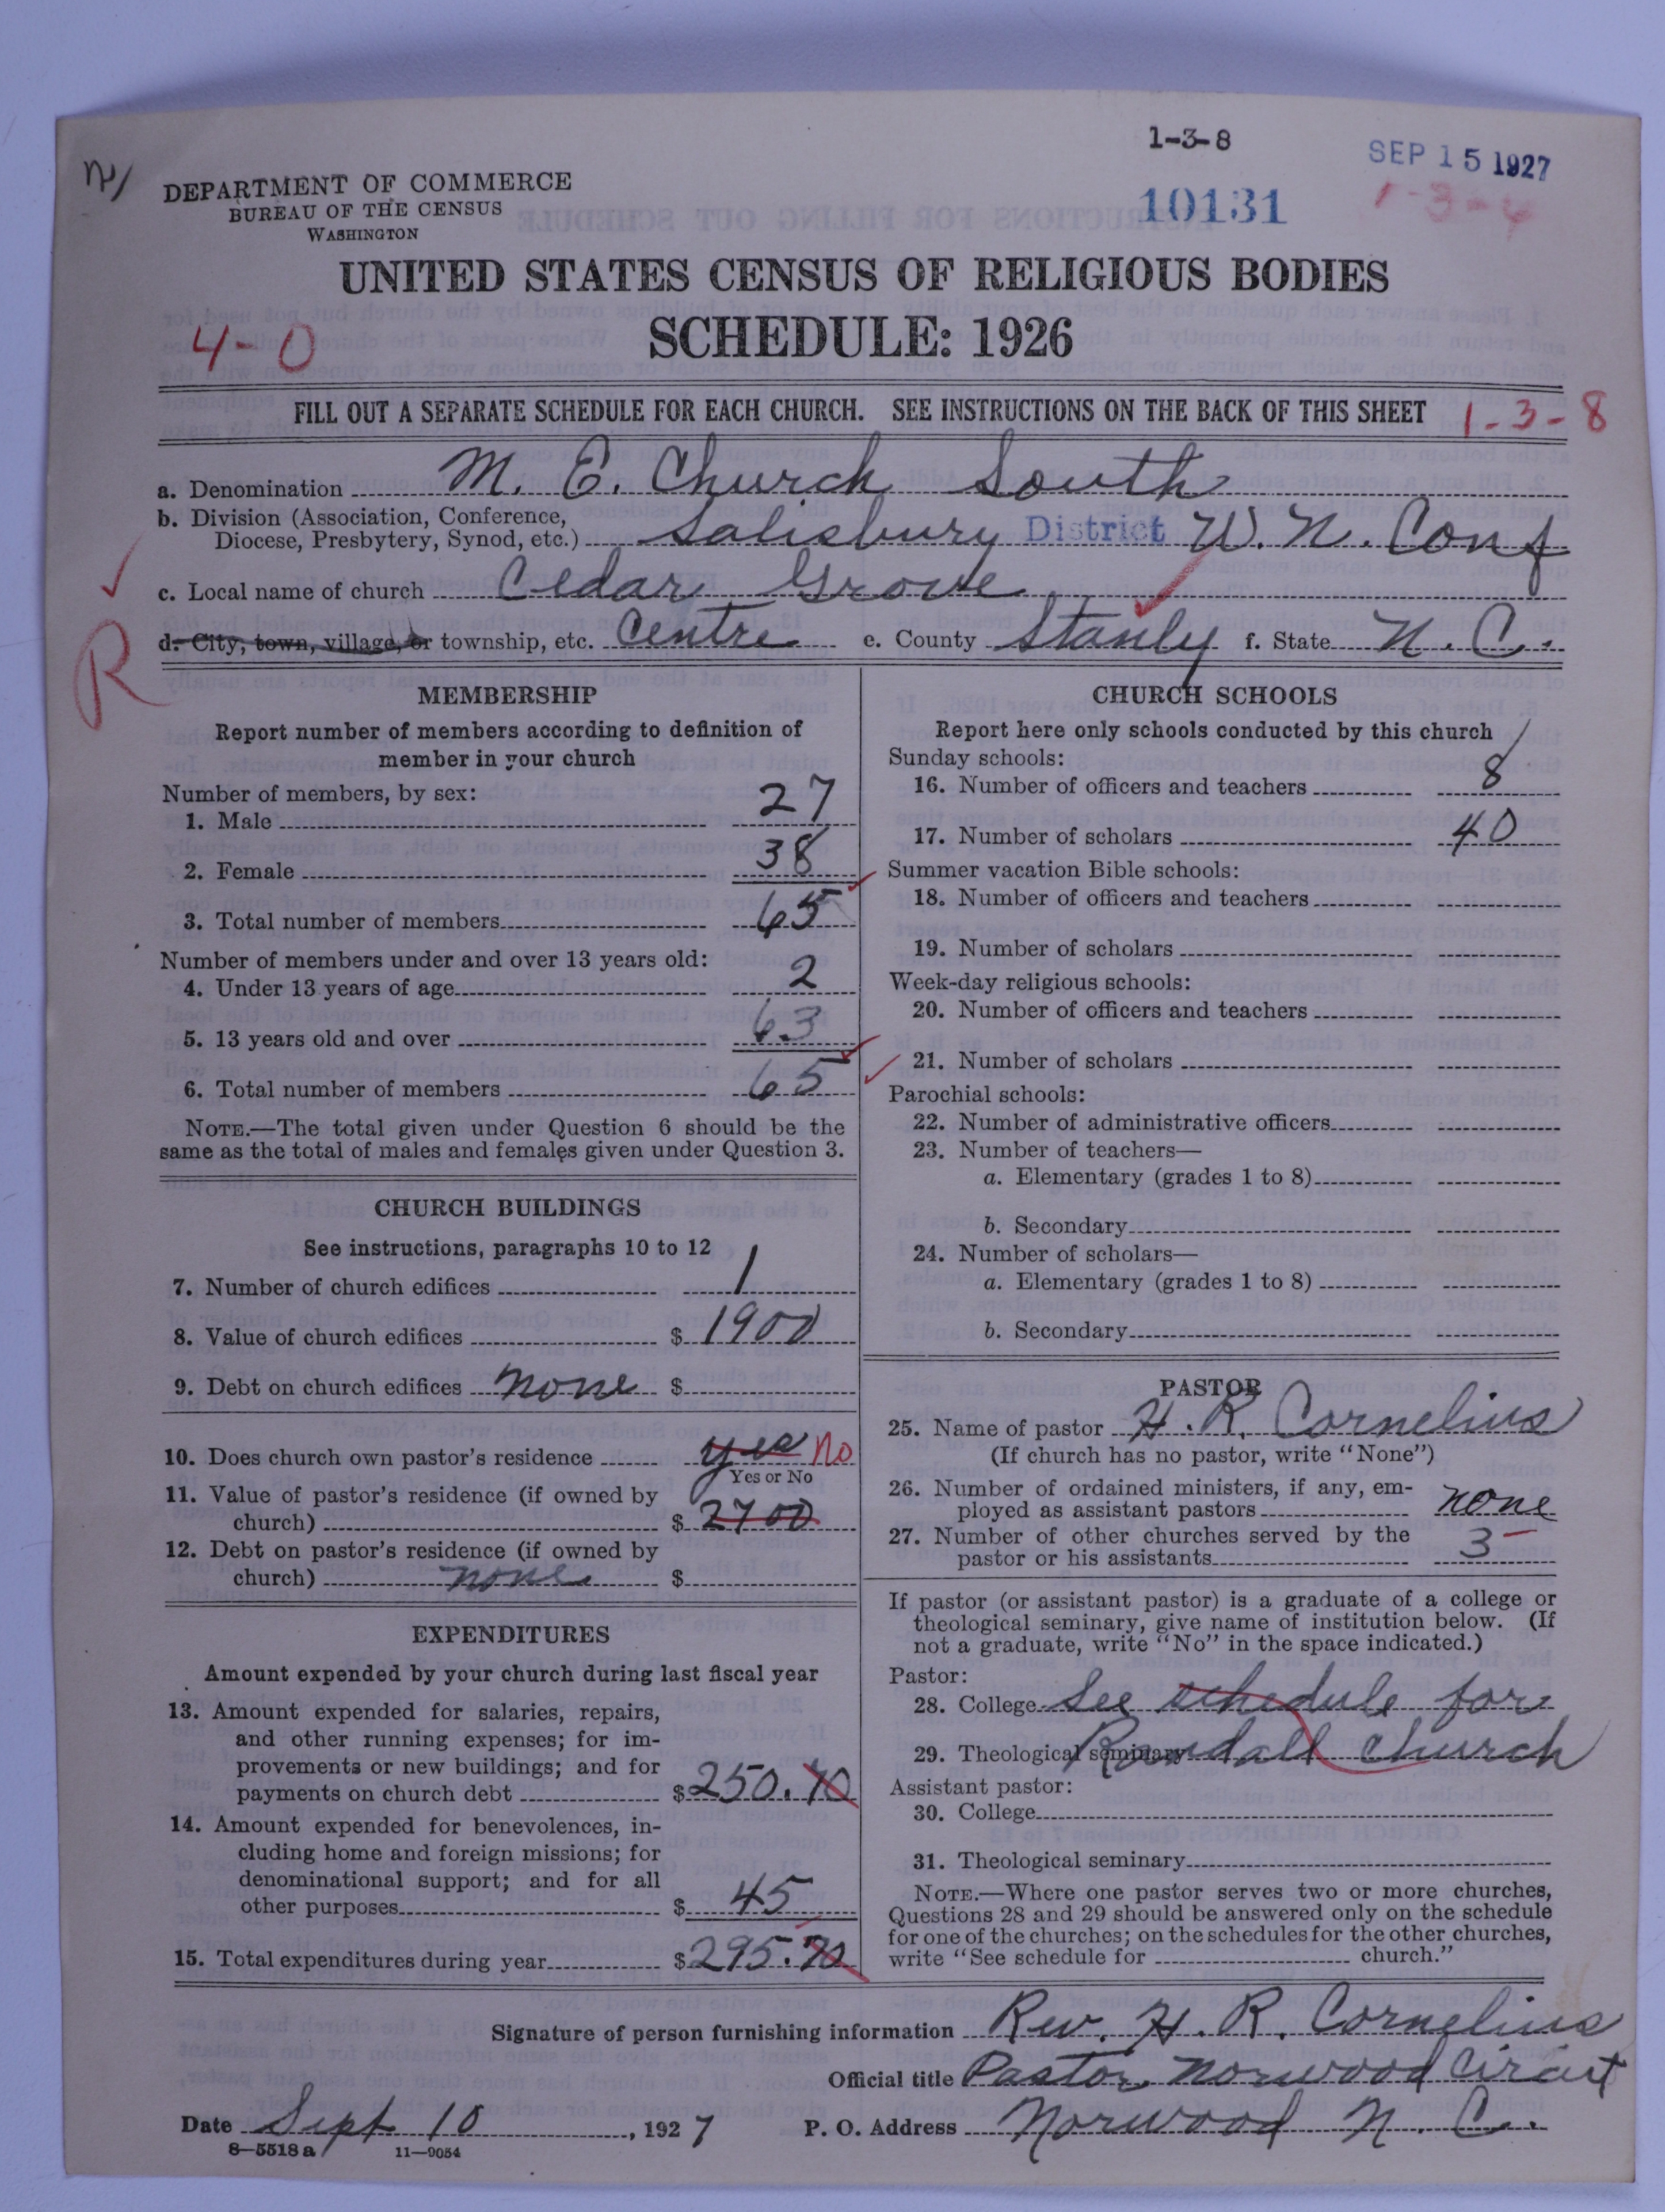 1-3-8
SEP 15 1927
10131
1-3-4
DEPARTMENT OF COMMERCE
BUREAU OF THE CENSUS
WASHINGTON
UNITED STATES CENSUS OF RELIGIOUS BODIES
4-0
SCHEDULE: 1926
FILL OUT A SEPARATE SCHEDULE FOR EACH CHURCH. SEE INSTRUCTIONS ON THE BACK OF THIS SHEET
1-3-8
a. Denomination M. E. Church South
b. Division (Association, Conference,
Diocese, Presbytery, Synod, etc.) Salisbury District W. N. Conf
c. Local name of church Cedar Grove
d. City, town, village, or township, etc. Centre e. County Stanly f. State N. C.
R
MEMBERSHIP
Report number of members according to definition of
member in your church
Number of members, by sex:
1. Male 27
2. Female 38
3. Total number of members 65
Number of members under and over 13 years old:
4. Under 13 years of age 2
5. 13 years old and over 63
6. Total number of members 65
NOTE.—The total given under Question 6 should be the
same as the total of males and females given under Question 3.
CHURCH BUILDINGS
See instructions, paragraphs 10 to 12
7. Number of church edifices 1
8. Value of church edifices $ 1900
9. Debt on church edifices none $
10. Does church own pastor's residence yes no
Yes or No
11. Value of pastor's residence (if owned by
church) $ 2700
12. Debt on pastor's residence (if owned by
church) none $
EXPENDITURES
Amount expended by your church during last fiscal year
13. Amount expended for salaries, repairs,
and other running expenses; for im-
provements or new buildings; and for
payments on church debt $ 250.70
14. Amount expended for benevolences, in-
cluding home and foreign missions; for
denominational support; and for all
other purposes $ 45
15. Total expenditures during year $ 295.70
CHURCH SCHOOLS
Report here only schools conducted by this church
Sunday schools:
16. Number of officers and teachers 8
17. Number of scholars 40
Summer vacation Bible schools:
18. Number of officers and teachers
19. Number of scholars
Week-day religious schools:
20. Number of officers and teachers
21. Number of scholars
Parochial schools:
22. Number of administrative officers
23. Number of teachers—
a. Elementary (grades 1 to 8)
b. Secondary
24. Number of scholars—
a. Elementary (grades 1 to 8)
b. Secondary
PASTOR
25. Name of pastor H. R. Cornelius
(If church has no pastor, write "None")
26. Number of ordained ministers, if any, em-
ployed as assistant pastors none
27. Number of other churches served by the
pastor or his assistants 3
If pastor (or assistant pastor) is a graduate of a college or
theological seminary, give name of institution below. (If
not a graduate, write "No" in the space indicated.)
Pastor:
28. College See schedule for
29. Theological seminary Randall Church
Assistant pastor:
30. College
31. Theological seminary
NOTE.—Where one pastor serves two or more churches,
Questions 28 and 29 should be answered only on the schedule
for one of the churches; on the schedules for the other churches,
write "See schedule for church."
Signature of person furnishing information Rev. H. R. Cornelius
Official title Pastor Norwood Circuit
Date Sept 10, 1927 P. O. Address Norwood N. C.
8—5518 a 11—9054